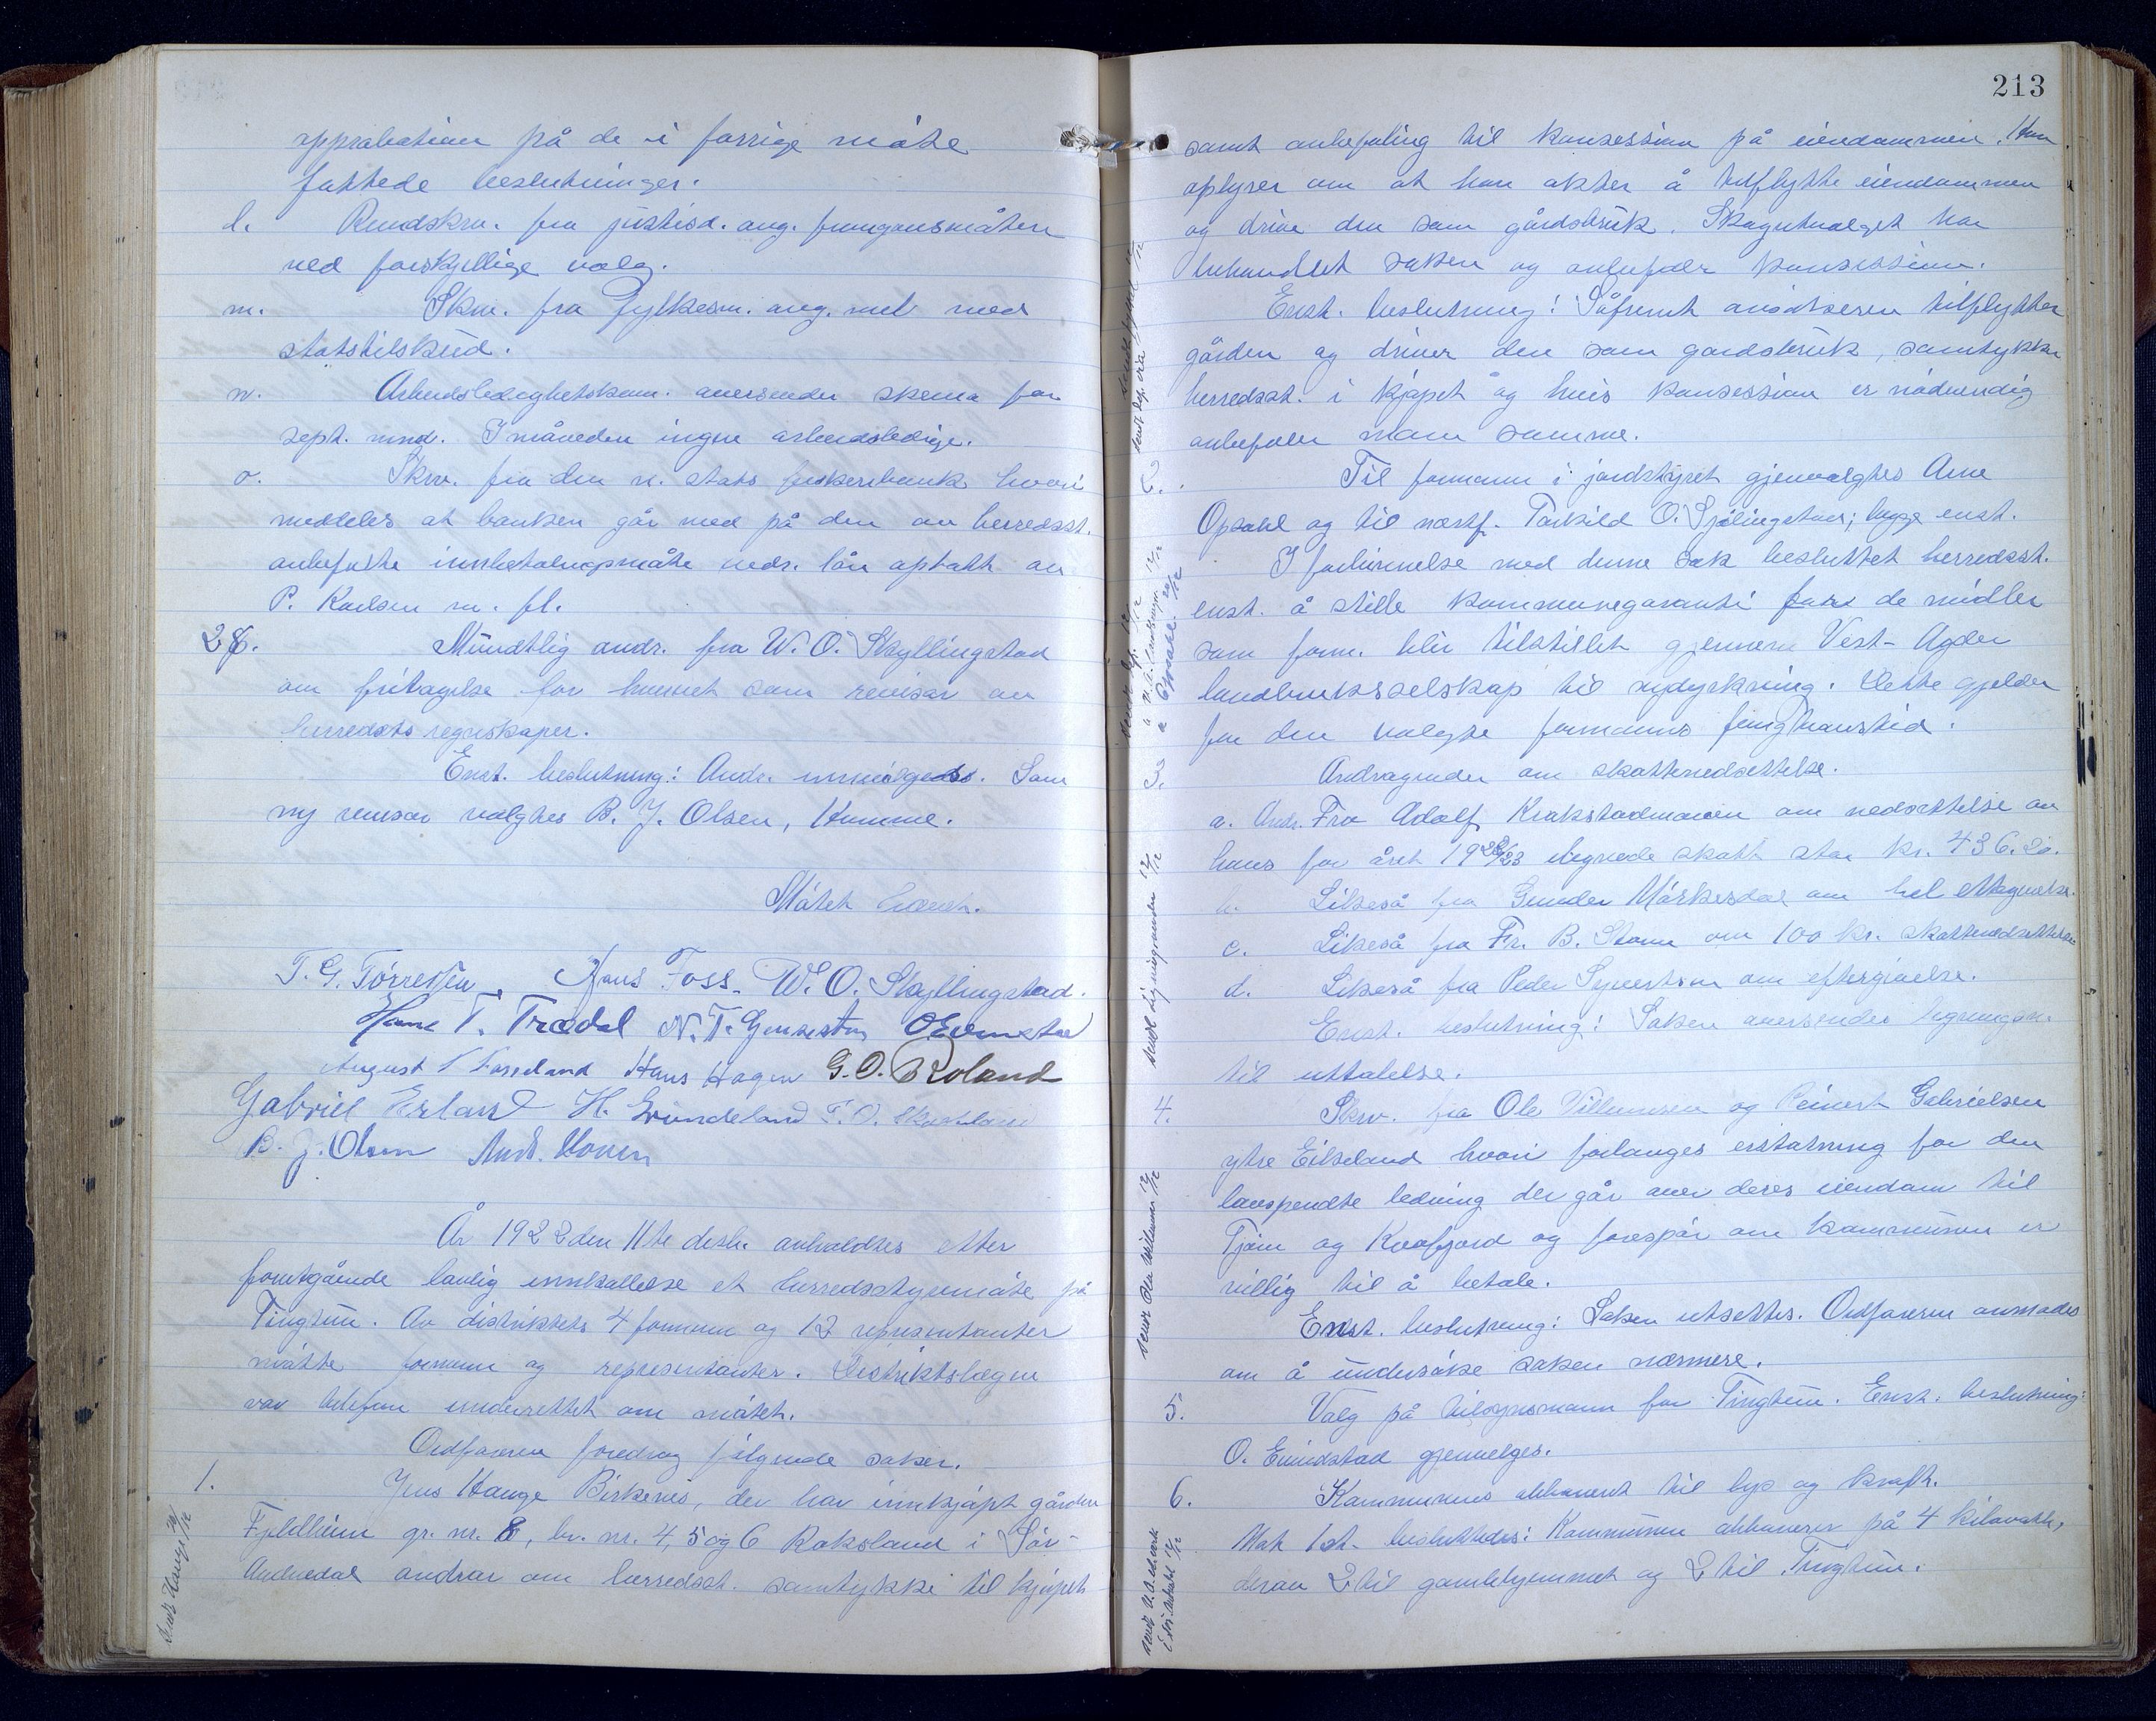 approbation på de i forrige møte
fattede beslutninger.
l. Rundskrv. fra justisd. ang. fremgansmåten
ved forskjellige valg.
m. Skrv. fra Fylkesm. ang. med
statstilskud.
n. Arbeidsledighetskom. oversender skema for
sept. mnd. I måneden ingen arbeidsledige.
o. Skrv. fra den n. stats fiskeribank hvori
meddeles at banken går med på den av herredsst.
anbefalte innbetalingsmåte vedr. lån optatt av
P. Karlsen m. fl.
28. Mundtlig andr. fra W. O. Skyllingstad
om fritagelse for hvervet som revisor av
herredets regnskaper.
Enst. beslutning: Andr. Som
ny revisor valgtes B. J. Olsen, Humme.
Møtet hævet.
T. G. Tørressen Hans Foss. W. O. Skyllingstad.
Hans T. Trædal N. T.
August Hans Hagen G. O. Roland
Gabriel H. T. O.
B. J. Olsen And.
År 1922 den 11te desbr. avholdtes etter
forutgående lovlig innkallelse et herredsstyremøte på
Tingtun. Av distriktets 4 formenn og 12 representanter
møtte formenn og representanter. Distriktslægen
var telefon. underrettet om møtet.
Ordføreren foredrog følgende saker.
1. Jens Hauge Birkenes, der har innkjøpt gården
Fjeldheim gr. nr. 8, br. nr. 4, 5 og 6 Roksland i Sør-
Audnedal andrar om herredsst. samtykke til kjøpet
213
samt anbefaling til konsession på eiendommen. Han
oplyser om at han akter å tilflytte eiendommen
og drive den som gårdsbruk. Skogutvalget har
behandlet saken og anbefaler konsession.
Enst. beslutning: Såfremt ansøkeren tilflytter
gården og driver den som gårdsbruk, samtykker
herredsst. i kjøpet og hvis konsession er nødvendig
anbefaler man samme.
2. Til formann i jordstyret gjenvalgtes Arne
Opsahl og til næstf. Torkild O. begge enst.
I forbinnelse med denne sak besluttet herredsst.
enst. å stille kommunegaranti for de midler
som form. blir tilstillet gjennem Vest-Agder
landbruksselskap til nydyrkning. Dette gjelder
for den valgte formanns funktionstid.
3. Andragender om skattenedsettelse.
a. Andr. Fra Adolf Krakstadmoen om nedsettelse av
hans for året 1922/23 ilignede skatt stor kr. 436.20.
b. Likeså fra Gunder om hel ettergivelse.
c. Likeså fra Fr. B. om 100 kr. skattenedsettelse
d. Likeså fra Peder Syvertsen om eftergivelse.
Enst. beslutning: Saken oversendes ligningsn.
til uttalelse.
4. Skrv. fra Ole Villumsen og Reinert Gabrielsen
ytre Eikeland hvori forlanges erstatning for den
lavspendte ledning der går over deres eiendom til
Tjøm og Kvafjord og forespør om kommunen er
villig til å betale.
Enst. beslutning: Saken utsettes. Ordføreren anmodes
om å undersøke saken nærmere.
5. Valg på tilsynsmann for Tingtun. Enst. beslutning:
O. gjenvelges.
6. Kommunens abbonent til lys og kraft.
Mot 1 st. besluttedes: Kommunen abbonerer på 4 kilovatt,
derav 2 til gamlehjemmet og 2 til Tingtun.